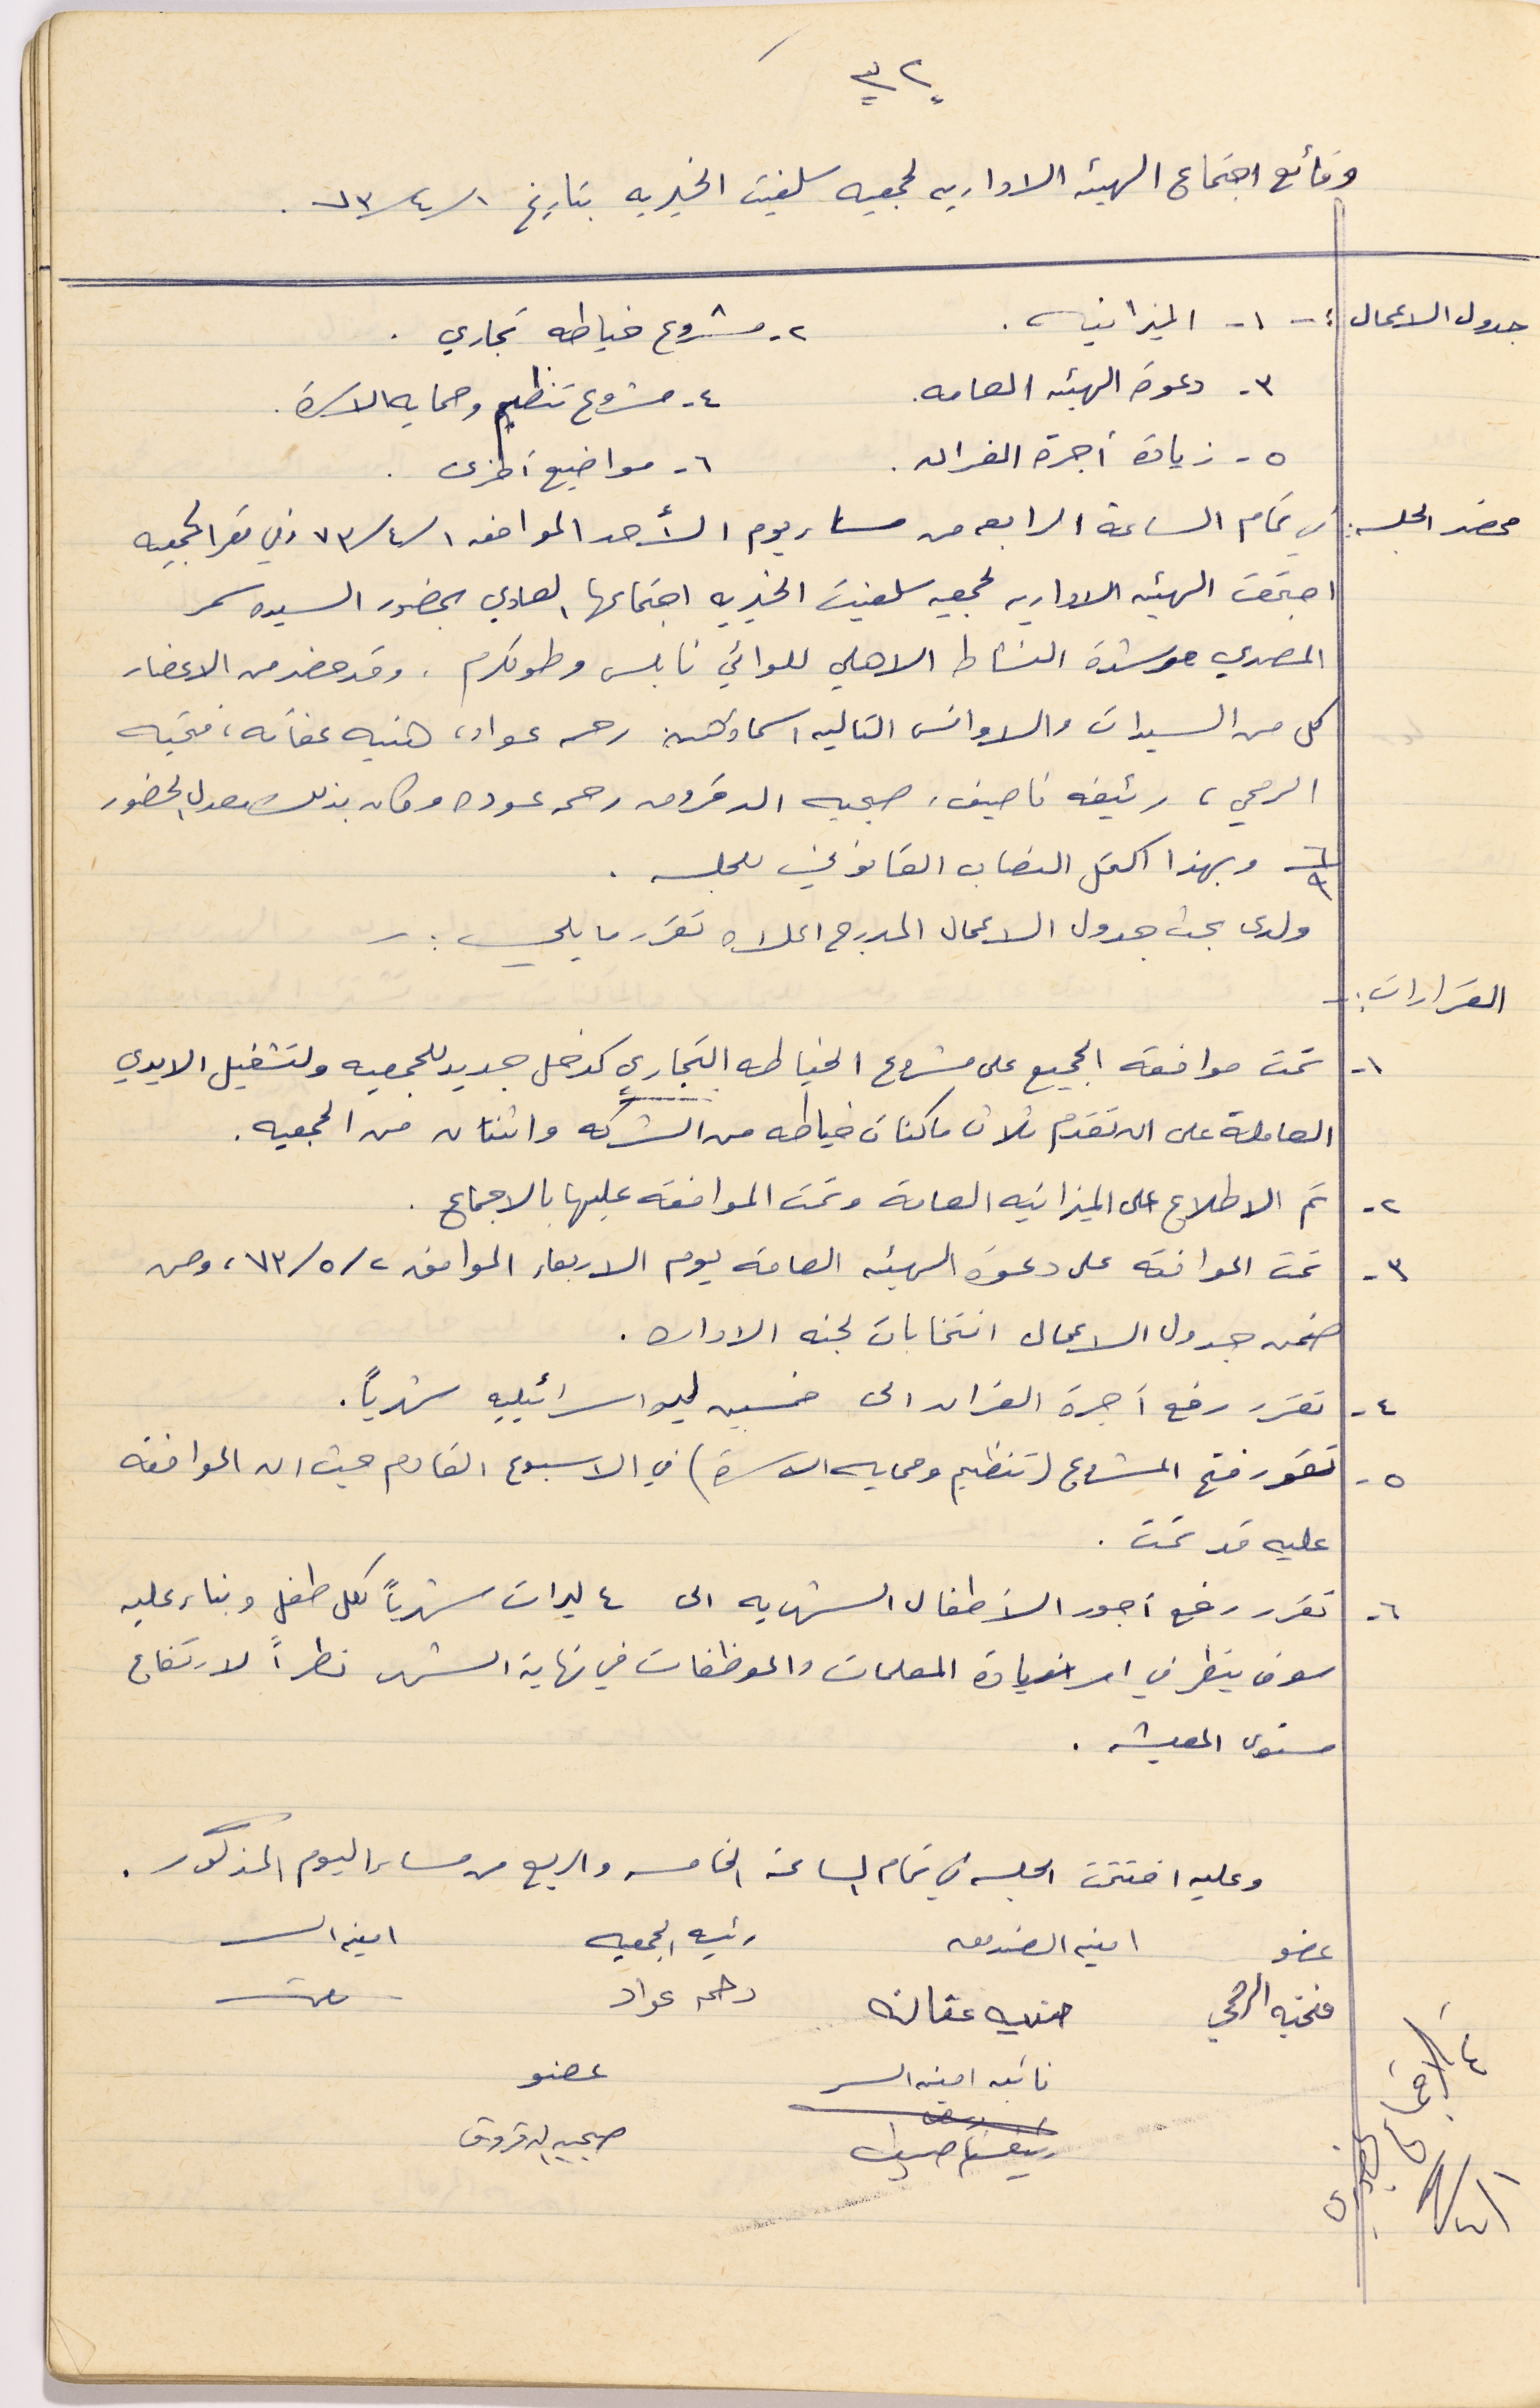 ٣٢
وقائع اجتماع الهيئه الاداريه لجمعيه سلفيت الخيريه بتاريخ ١/٤/٧٣ .
جدول الاعمال :- ١- الميزانيه . ٢- مشروع خياطه تجاري .
٣- دعوة الهيئه العامه . ٤- مشروع تنظيم وحمايه الاسرة .
٥- زيادة أجرة الفران . ٦- مواضيع أخرى .
محضر الجلسه : في تمام الساعة الرابعه من مساء يوم الأحد الموافق ١/٤/٧٣ وفي مقر الجمعيه
اجتمعت الهيئه الاداريه لجمعيه سلفيت الخيريه اجتماعها العادي بحضور السيده سمر
المصري مرشدة النشاط الاهلي للوائي نابلس وطولكرم . وقد حضر من الاعضاء
كل من السيدات والاوانس التاليه اسماؤهن رحمه عواد، هنيه عفانه، فتحيه
الرمحي، رئيفه ناصيف، صبحيه الدقروق رحمه عوده وكان بذلك معدل الحضور
٦/٩ وبهذا اكتمل النصاب القانوني للجلسه .
ولدى بحث جدول الاعمال المدرج اعلاه تقرر ما يلي :-
القرارات :-
١- تمت موافقة الجميع على مشروع الخياطه التجاري كدخل جديد للجمعيه ولتشغيل الايدي
العاملة على ان تقدم ثلاث ماكنات خياطه من الشركه واثنتان من الجمعيه .
٢- تم الاطلاع على الميزانيه العامة وتمت الموافقه عليها بالاجماع .
٣- تمت الموافقة على دعوة الهيئه العامة يوم الاربعاء الموافق ٢/٥/٧٣، ومن
ضمن جدول الاعمال انتخابات لجنه الاداره .
٤- تقرر رفع أجرة الفران الى خمسين ليره اسرائيليه شهرياً .
٥- تقرر فتح المشروع (تنظيم وحمايه الاسرة) في الاسبوع القادم حيث ان الموافقه
عليه قد تمت .
٦- تقرر رفع أجور الأطفال الشهريه الى ٤ ليرات شهرياً لكل طفل وبناء عليه
سوف ينظر في امر زيادة المعلمات والموظفات في نهاية الشهر نظراً لارتفاع
مستوى المعيشه .
وعليه اختتمت الجلسه في تمام الساعة الخامسه والربع من مساء اليوم المذكور .
عضو امينه الصندوق رئيسه الجمعيه امينه السر
فتحيه الرمحي هنيه عفانه رحمه عواد
نائبه امينه السر عضو
رئيفه ناصيف صبحيه الدقروق